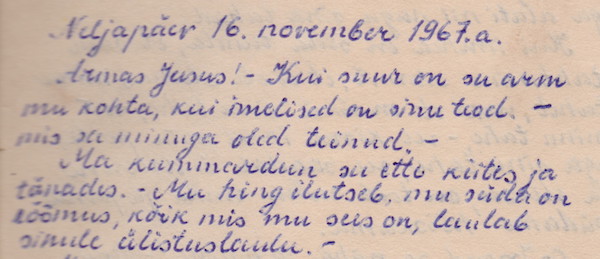 Neljapäev 16. november 1967.a.
Armas Jesus! - Kui suur on su arm
mu kohta, kui imelised on sinu teod. -
mis sa minuga oled teinud. -
Ma kummardun su ette kiites ja
tänades. - Mu hing ilutseb, mu süda on
rõõmus, kõik mis mu sees on, laulab
sinule ülistuslaulu. -